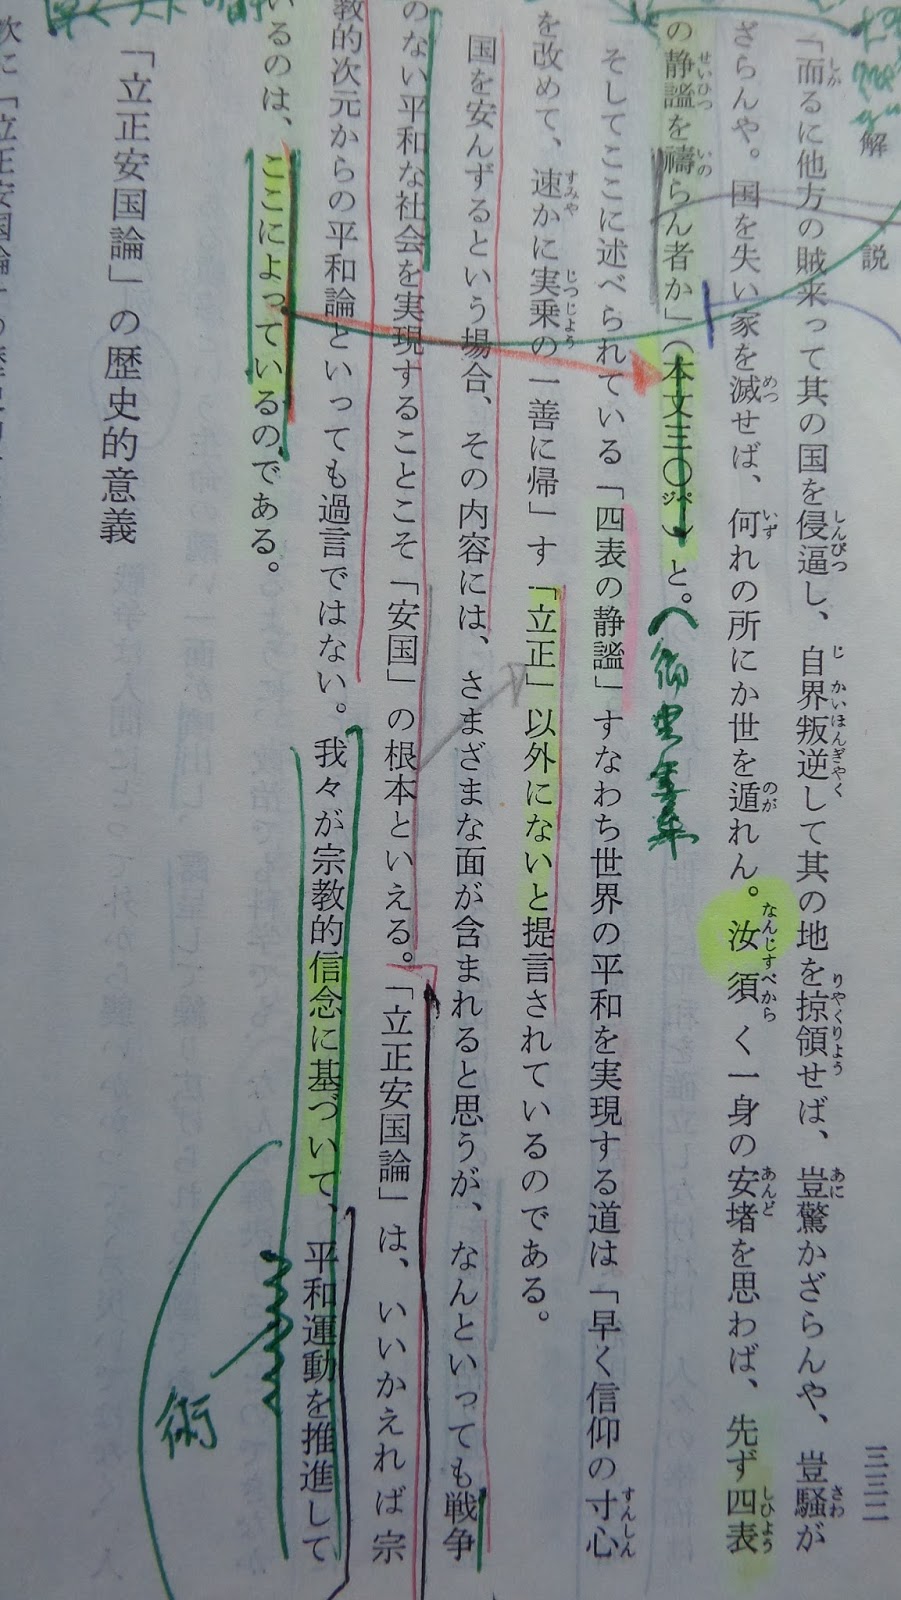 解説
三三二
「而るに他方の賊来って其の国を侵逼し、自界叛逆して其の地を掠領せば、豈驚かざらんや、豈騒が
ざらんや。国を失い家を滅せば、何れの所にか世を遁れん。汝須く一身の安堵を思わば、先ず四表
の静謐を禱らん者か」(本文三〇ジペ)と。
そしてここに述べられている「四表の静謐」すなわち世界の平和を実現する道は「早く信仰の寸心
を改めて、速かに実乗の一善に帰」す「立正」以外にないと提言されているのである。
国を安んずるという場合、その内容には、さまざまな面が含まれると思うが、なんといっても戦争
のない平和な社会を実現することこそ「安国」の根本といえる。「立正安国論」は、いいかえれば宗
教的次元からの平和論といっても過言ではない。我々が宗教的信念に基づいて、平和運動を推進して
いるのは、ここによっているのである。
術
「立正安国論」の歴史的意義